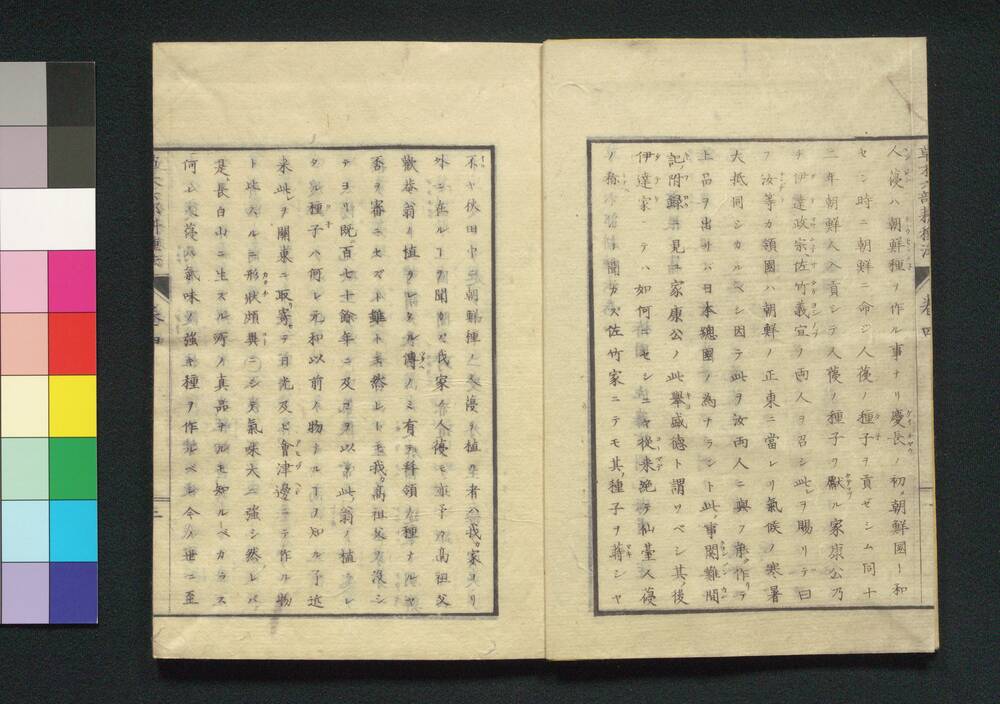 草木六部耕種法 巻四
人薓ハ朝鮮種ヲ作ル事ナリ慶長ノ初朝鮮国ト和
セシ時ニ朝鮮ニ命ジ人薓ノ種子ヲ貢ゼシム同十
二年朝鮮人入貢シテ人薓ノ種子ヲ獻ル家康公乃
チ伊達政宗佐竹義宣ノ両人ヲ召シ此レヲ賜リテ曰
フ汝等カ領國ハ朝鮮ノ正東ニ當レリ氣候ノ寒暑
大抵同シカルベシ因テ此ヲ汝両人ニ與フ能作リテ
上品ヲ出サハ日本總國ノ為ナラント此事関難間
記附録ニ見ユ家康公ノ此擧盛徳ト謂ツベシ其後
伊達家ニテハ如何ニセシニヤ從来絶テ仙臺人薓
ノ稱ヲ聞カズ佐竹家ニテモ其種子ヲ蒔シヤ
不ヤ秋田中ニ朝鮮種ノ人薓ヲ植ル者ハ我家ヨリ
外ニ在ルヿヲ聞カズ我家ノ人薓モ亦予カ高祖父
歡菴翁ノ植ラレタル傳ノミ有テ拝領ノ種ナルヤ
否ヲ審ニセズト雖トモ然レトモ我高祖父ノ没シ
テヨリ既ニ百七十餘年ニ及ブヲ以テ此翁ノ植ラレ
タル種子ハ何レ元和以前ノ物ナルヿヲ知ル予近
来此レヲ關東ニ取寄テ日光及ビ會津邊ニテ作ル物
ト比スルニ形状頗異ニシテ氣味大ニ強シ然レバ
是長白山ニ生スル所ノ真品ナルモ知ルベカラス
何ニモ人薓ハ氣味ノ強キ種ヲ作ルベシ今ノ世ニ至